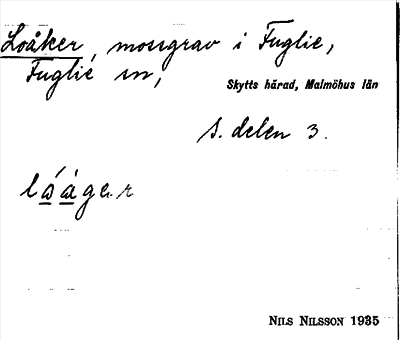 Loåker, mossgrav i Fuglie,
Fuglie sn,
Skytts härad, Malmöhus län
S. delen 3.
låågər
NILS NILSSON 1935